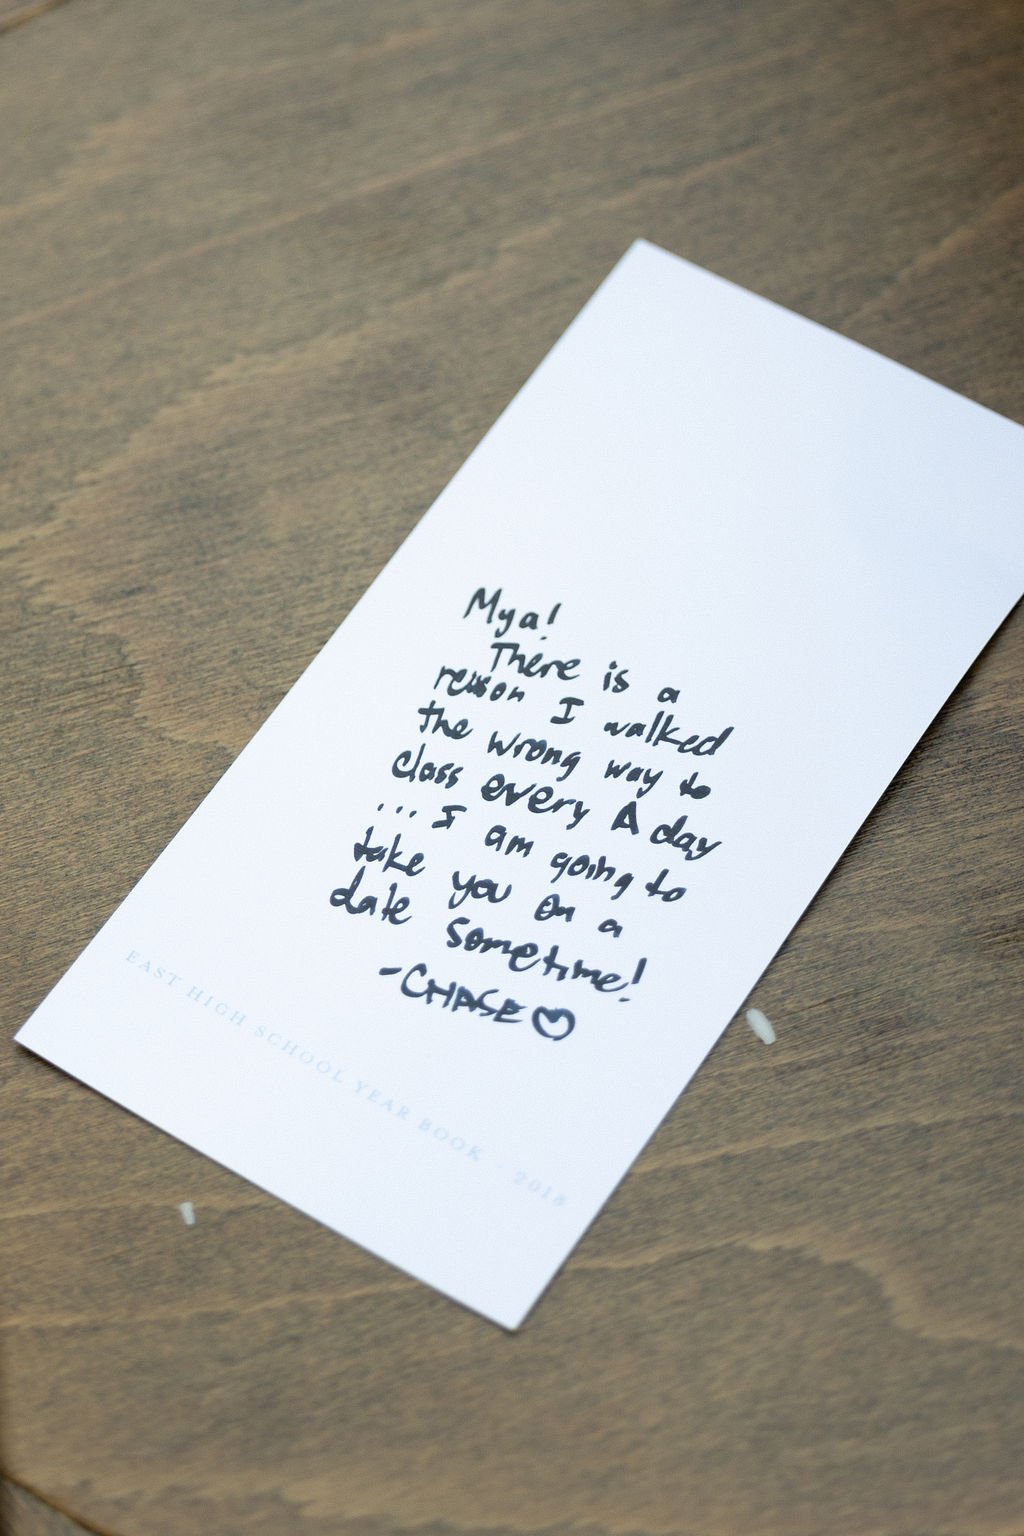 Mya!
There is a
reason I walked
the wrong way to
class every A day
... I am going to
take you on a
date sometime!
-CHASE♡
EAST HIGH SCHOOL YEAR BOOK · 2018